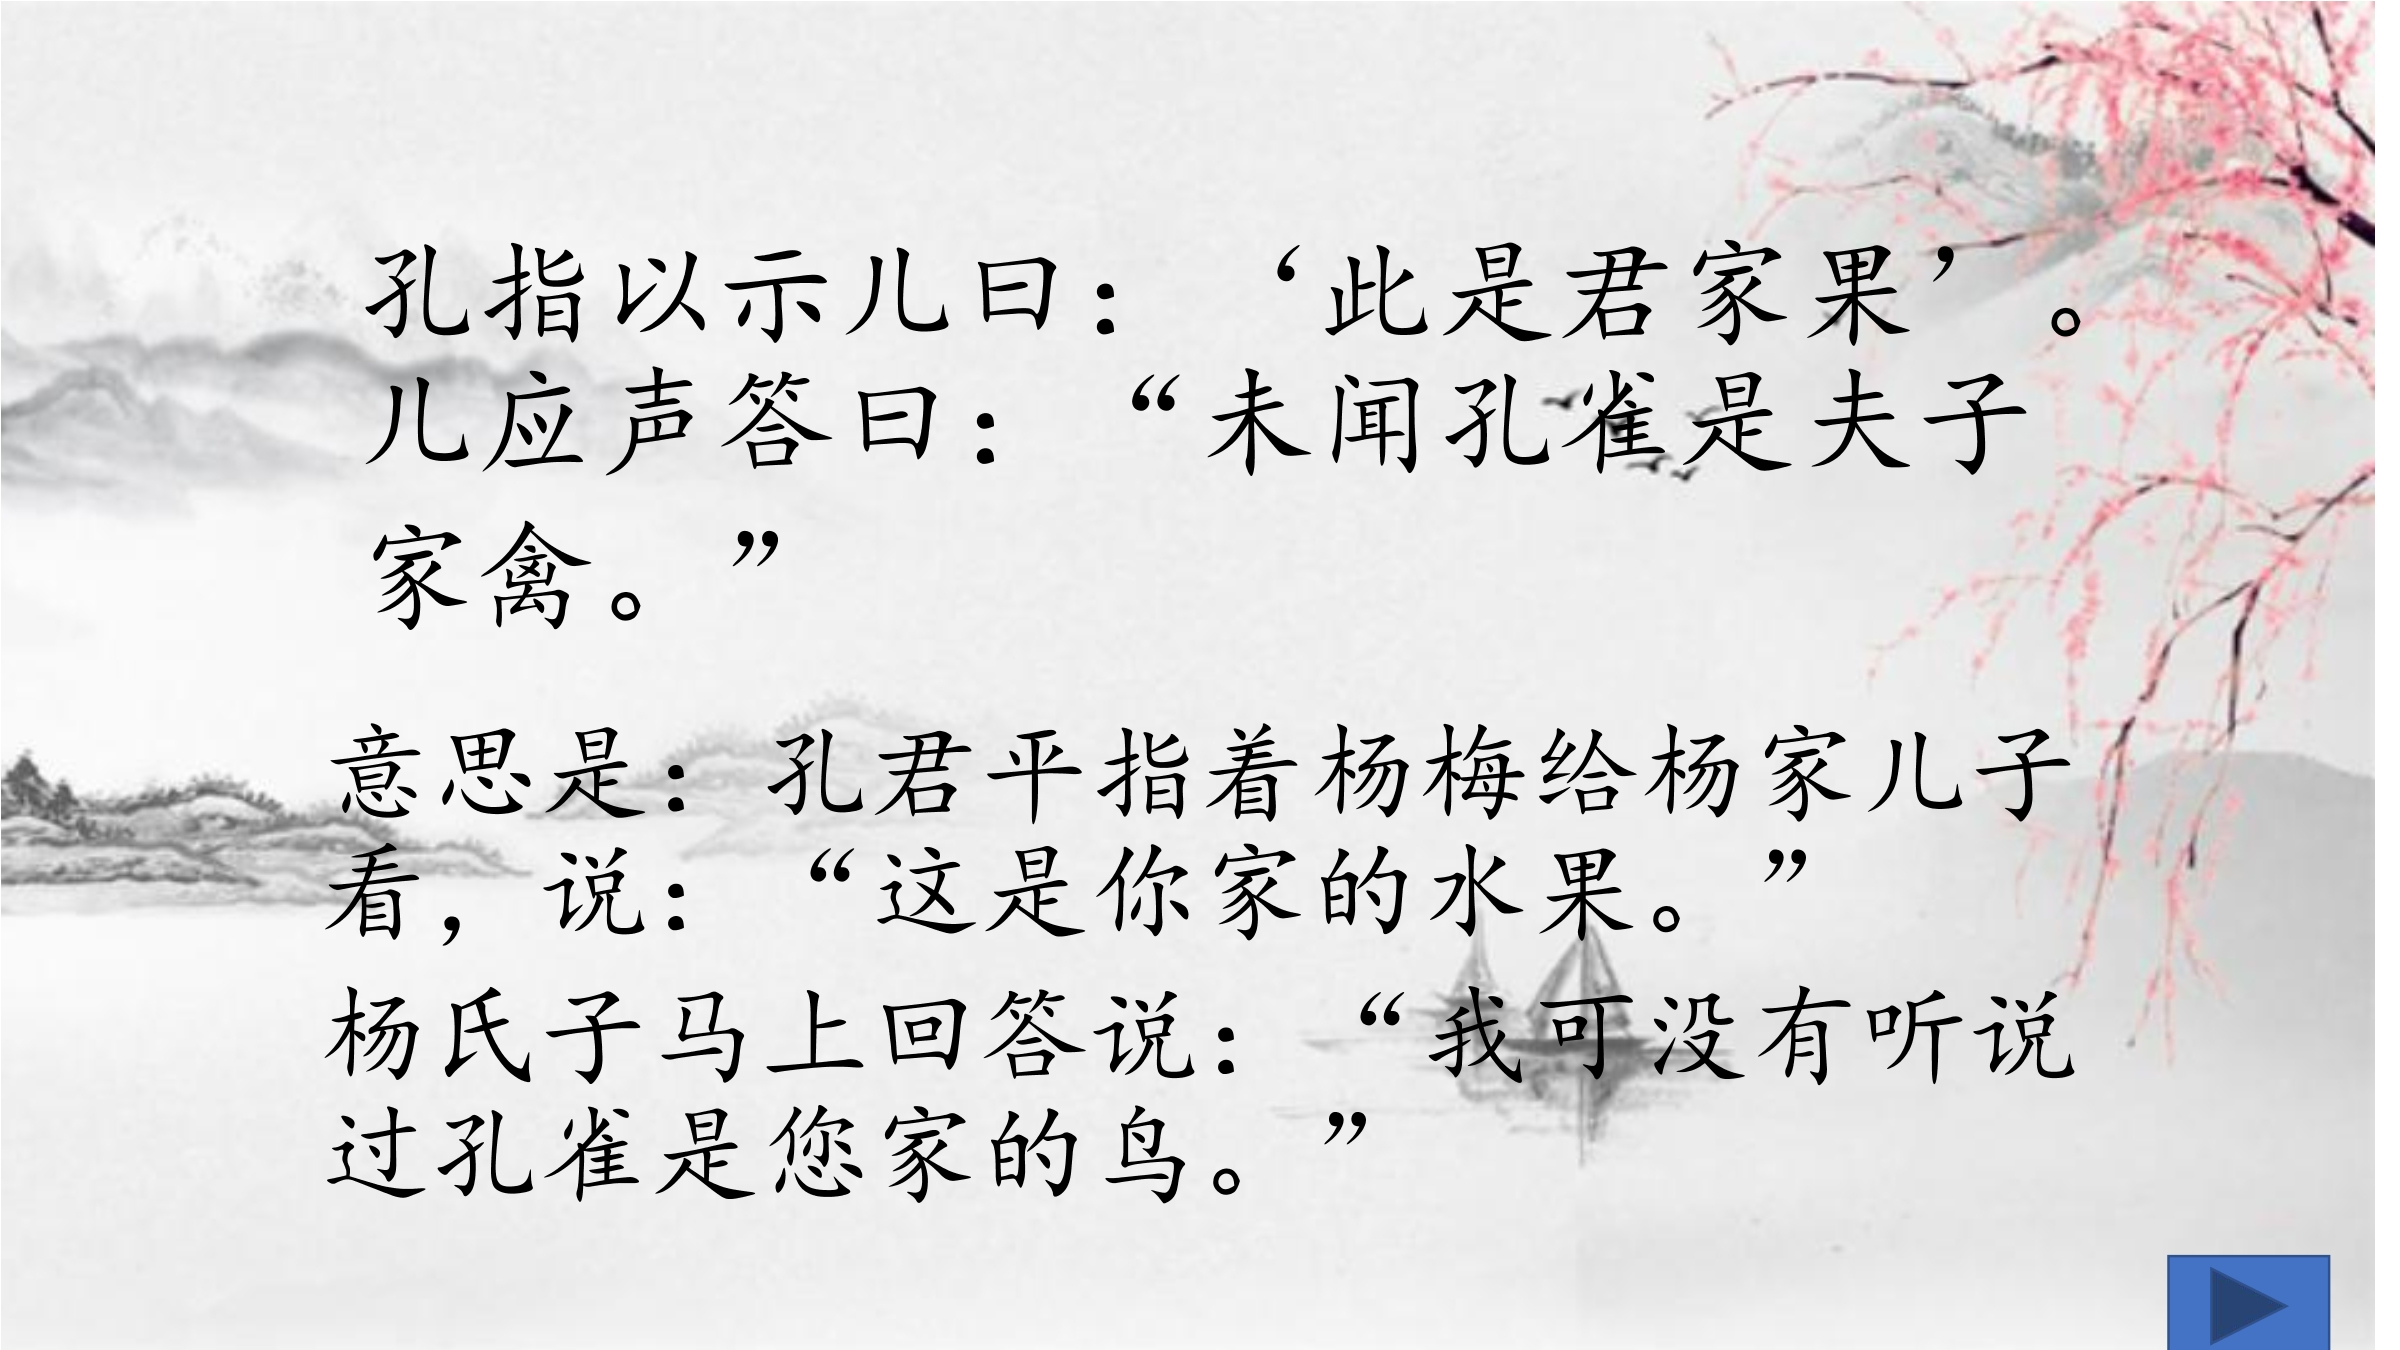 孔指以示儿曰：‘此是君家果’。
儿应声答曰：“未闻孔雀是夫子
家禽。”
意思是：孔君平指着杨梅给杨家儿子
看，说：“这是你家的水果。”
杨氏子马上回答说：“我可没有听说
过孔雀是您家的鸟。”